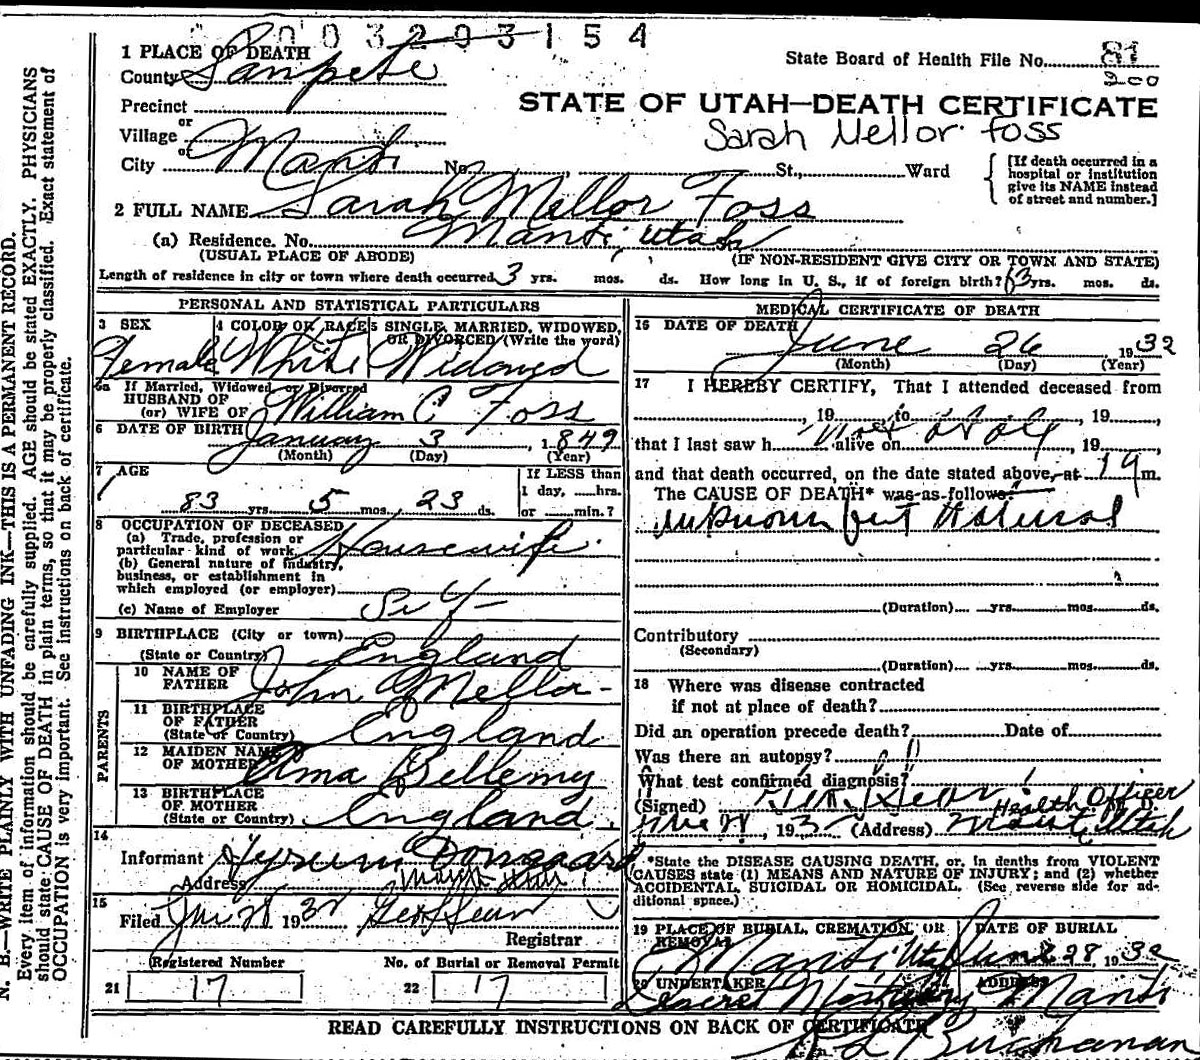 003203154
1 PLACE OF DEATH
State Board of Health File No. 81
County Sanpete
200
Precinct
STATE OF UTAH—DEATH CERTIFICATE
or
Village
Sarah Mellor Foss
or
City Manti No. St., Ward
[If death occurred in a hospital or institution give its NAME instead of street and number.]
2 FULL NAME Sarah Mellor Foss
(a) Residence. No. Manti, Utah
(USUAL PLACE OF ABODE) (IF NON-RESIDENT GIVE CITY OR TOWN AND STATE)
Length of residence in city or town where death occurred 3 yrs. mos. ds. How long in U. S., if of foreign birth? 63 yrs. mos. ds.
PERSONAL AND STATISTICAL PARTICULARS
3 SEX 4 COLOR OR RACE 5 SINGLE, MARRIED, WIDOWED, OR DIVORCED (Write the word)
Female White Widowed
5a If Married, Widowed or Divorced
HUSBAND OF
(or) WIFE OF William C Foss
6 DATE OF BIRTH January 3, 1849
(Month) (Day) (Year)
7 AGE
If LESS than
1 day, hrs.
83 yrs. 5 mos. 23 ds. or min.?
8 OCCUPATION OF DECEASED
(a) Trade, profession or
particular kind of work Housewife
(b) General nature of industry,
business, or establishment in
which employed (or employer)
(c) Name of Employer Self
9 BIRTHPLACE (City or town)
(State or Country) England
PARENTS
10 NAME OF
FATHER John Mellor
11 BIRTHPLACE
OF FATHER
(State or Country) England
12 MAIDEN NAME
OF MOTHER Ama Bellemy
13 BIRTHPLACE
OF MOTHER
(State or Country) England
14
Informant Hyrum
Address
15
Filed 28 1932
Registrar
Registered Number No. of Burial or Removal Permit
21 17 22 17
MEDICAL CERTIFICATE OF DEATH
16 DATE OF DEATH June 26 1932
(Month) (Day) (Year)
17 I HEREBY CERTIFY, That I attended deceased from
, 19 to , 19
that I last saw h alive on , 19 ,
and that death occurred, on the date stated above, at m.
The CAUSE OF DEATH* was as follows:
unknown but Natural
(Duration) yrs. mos. ds.
Contributory
(Secondary)
(Duration) yrs. mos. ds.
18 Where was disease contracted
if not at place of death?
Did an operation precede death? Date of
Was there an autopsy?
What test confirmed diagnosis?
(Signed) Health Officer
, 1932 (Address) Utah
*State the DISEASE CAUSING DEATH, or, in deaths from VIOLENT
CAUSES state (1) MEANS AND NATURE OF INJURY; and (2) whether
ACCIDENTAL, SUICIDAL OR HOMICIDAL. (See reverse side for ad-
ditional space.)
19 PLACE OF BURIAL, CREMATION, OR REMOVAL DATE OF BURIAL
Manti Utah June 28, 1932
20 UNDERTAKER ADDRESS
Deseret Mortuary Manti
READ CAREFULLY INSTRUCTIONS ON BACK OF CERTIFICATE
Buchanan
N. B.—WRITE PLAINLY WITH UNFADING INK—THIS IS A PERMANENT RECORD.
Every item of information should be carefully supplied. AGE should be stated EXACTLY. PHYSICIANS
should state CAUSE OF DEATH in plain terms, so that it may be properly classified. Exact statement of
OCCUPATION is very important. See instructions on back of certificate.